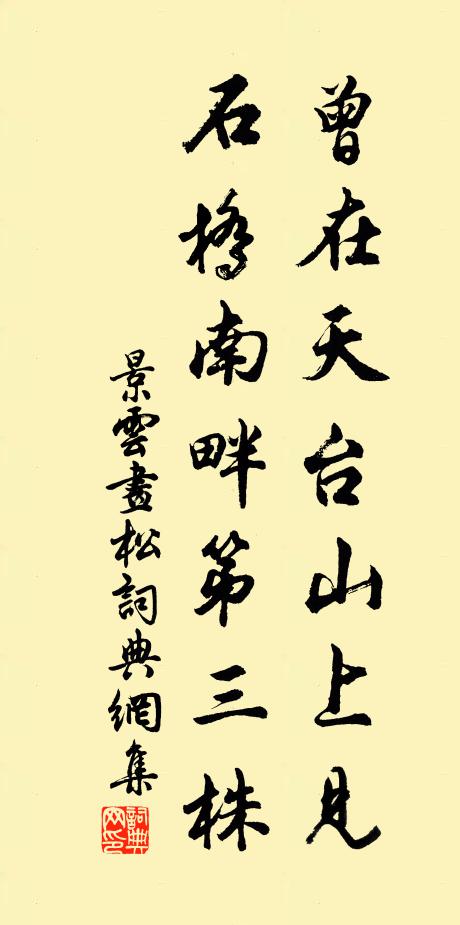 曾在天台山上見
石橋南畔第三株
景雲畫松詞典網集
詞典网印